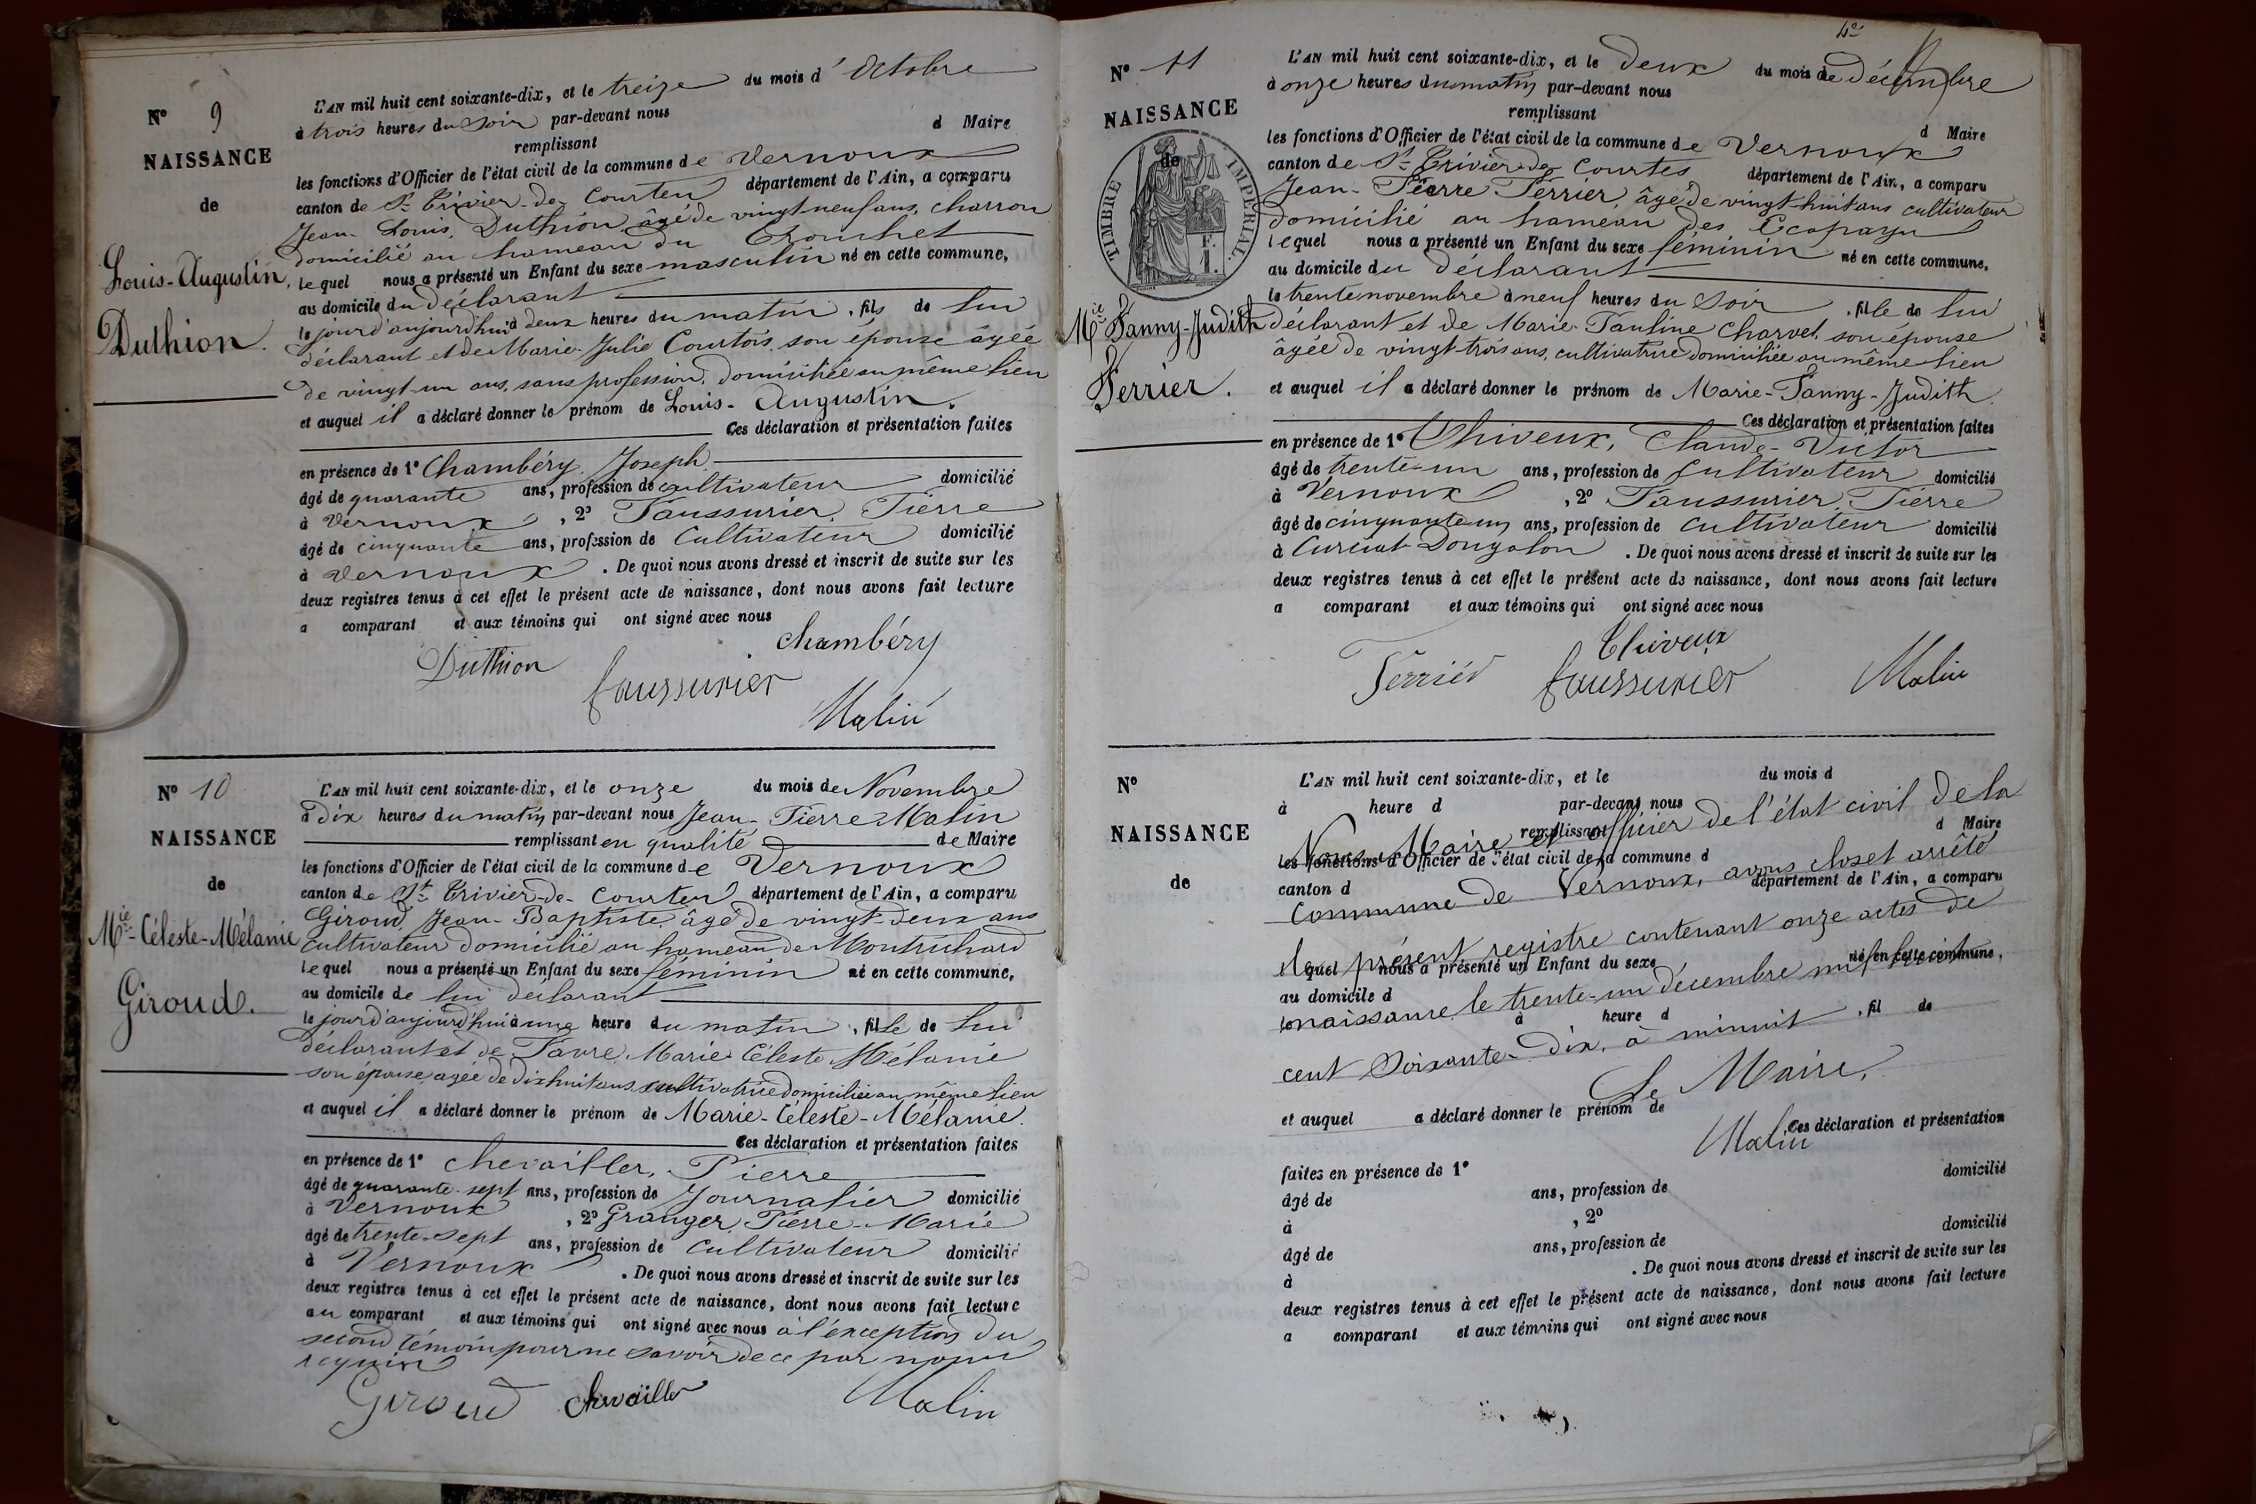 N° 9
NAISSANCE
de
Louis-Augustin,
Duthion.
L'AN mil huit cent soixante-dix, et le treize du mois d'Octobre
à trois heures du soir par-devant nous
remplissant d Maire
les fonctions d'Officier de l'état civil de la commune de Vernoux
canton de St Trivier-de-Courtes département de l'Ain, a comparu
Jean-Louis Duthion âgé de vingt-neuf ans, charron
domicilié au hameau du
lequel nous a présenté un Enfant du sexe masculin né en cette commune,
au domicile du déclarant
le jour d'aujourd'hui à deux heures du matin, fils de lui
déclarant et de Marie-Julie Courtois son épouse âgée
de vingt-un ans, sans profession, domiciliée au même lieu
et auquel il a déclaré donner le prénom de Louis-Augustin.
Ces déclaration et présentation faites
en présence de 1° Chambéry, Joseph
âgé de quarante ans, profession de cultivateur domicilié
à Vernoux, 2° Faussurier, Pierre
âgé de cinquante ans, profession de Cultivateur domicilié
à Vernoux. De quoi nous avons dressé et inscrit de suite sur les
deux registres tenus à cet effet le présent acte de naissance, dont nous avons fait lecture
a comparant et aux témoins qui ont signé avec nous
Chambéry
Duthion
faussurier
Malin
N° 10
NAISSANCE
de
Mie-Céleste-Mélanie
Giroud.
L'AN mil huit cent soixante-dix, et le onze du mois de Novembre
à dix heures du matin par-devant nous Jean-Pierre Malin
remplissant en qualité de Maire
les fonctions d'Officier de l'état civil de la commune de Vernoux
canton de St Trivier-de-Courtes département de l'Ain, a comparu
Giroud, Jean-Baptiste, âgé de vingt-deux ans
cultivateur domicilié au hameau de Montrichard
lequel nous a présenté un Enfant du sexe féminin né en cette commune,
au domicile de lui déclarant
le jour d'aujourd'hui à une heure du matin, fille de lui
déclarant et de Favre, Marie Céleste Mélanie
son épouse agée de dix huit ans, cultivatrice domiciliée au même lieu
et auquel il a déclaré donner le prénom de Marie-Céleste-Mélanie.
Ces déclaration et présentation faites
en présence de 1° Chevailler, Pierre
âgé de quarante-sept ans, profession de Journalier domicilié
à Vernoux, 2° Granger, Pierre-Marie
âgé de trente-sept ans, profession de Cultivateur domicilié
à Vernoux. De quoi nous avons dressé et inscrit de suite sur les
deux registres tenus à cet effet le présent acte de naissance, dont nous avons fait lecture
au comparant et aux témoins qui ont signé avec nous à l'exception du
second témoin pour ne savoir de ce par nous
requis
Giroud Chevailler Malin
N° 11
NAISSANCE
de
TIMBRE IMPÉRIAL
F.
1.
Mie Fanny-Judith
Perrier.
L'AN mil huit cent soixante-dix, et le deux du mois de décembre
à onze heures du matin par-devant nous
remplissant d Maire
les fonctions d'Officier de l'état civil de la commune de Vernoux
canton de St Trivier-de-Courtes département de l'Ain, a comparu
Jean-Pierre Perrier, âgé de vingt-huit ans cultivateur
domicilié au hameau des
lequel nous a présenté un Enfant du sexe féminin né en cette commune,
au domicile du déclarant
le trente novembre à neuf heures du soir, fille de lui
déclarant et de Marie-Pauline Charvet, son épouse
âgée de vingt-trois ans, cultivatrice domiciliée au même lieu
et auquel il a déclaré donner le prénom de Marie-Fanny-Judith.
Ces déclaration et présentation faites
en présence de 1° Thiveux, Claude-Victor
âgé de trente-un ans, profession de cultivateur domicilié
à Vernoux, 2° Faussurier, Pierre
âgé de cinquante-un ans, profession de cultivateur domicilié
à Curciat-Dongalon. De quoi nous avons dressé et inscrit de suite sur les
deux registres tenus à cet effet le présent acte de naissance, dont nous avons fait lecture
a comparant et aux témoins qui ont signé avec nous
Thiveux
Perrier faussurier Malin
N°
NAISSANCE
de
L'AN mil huit cent soixante-dix, et le du mois d
à heure d par-devant nous
Nous, Maire et officier de l'état civil de la
remplissant d Maire
les fonctions d'Officier de l'état civil de la commune d
canton d département de l'Ain, a comparu
Commune de Vernoux, avons clos et arrêté
le présent registre contenant onze actes de
lequel nous a présenté un Enfant du sexe né en cette commune,
au domicile d
naissance, le trente-un décembre mil huit
le à heure d , fil de
cent soixante-dix, à minuit
Le Maire,
et auquel a déclaré donner le prénom de
Malin
Ces déclaration et présentation
faites en présence de 1°
âgé de ans, profession de domicilié
à , 2°
âgé de ans, profession de domicilié
à . De quoi nous avons dressé et inscrit de suite sur les
deux registres tenus à cet effet le présent acte de naissance, dont nous avons fait lecture
a comparant et aux témoins qui ont signé avec nous